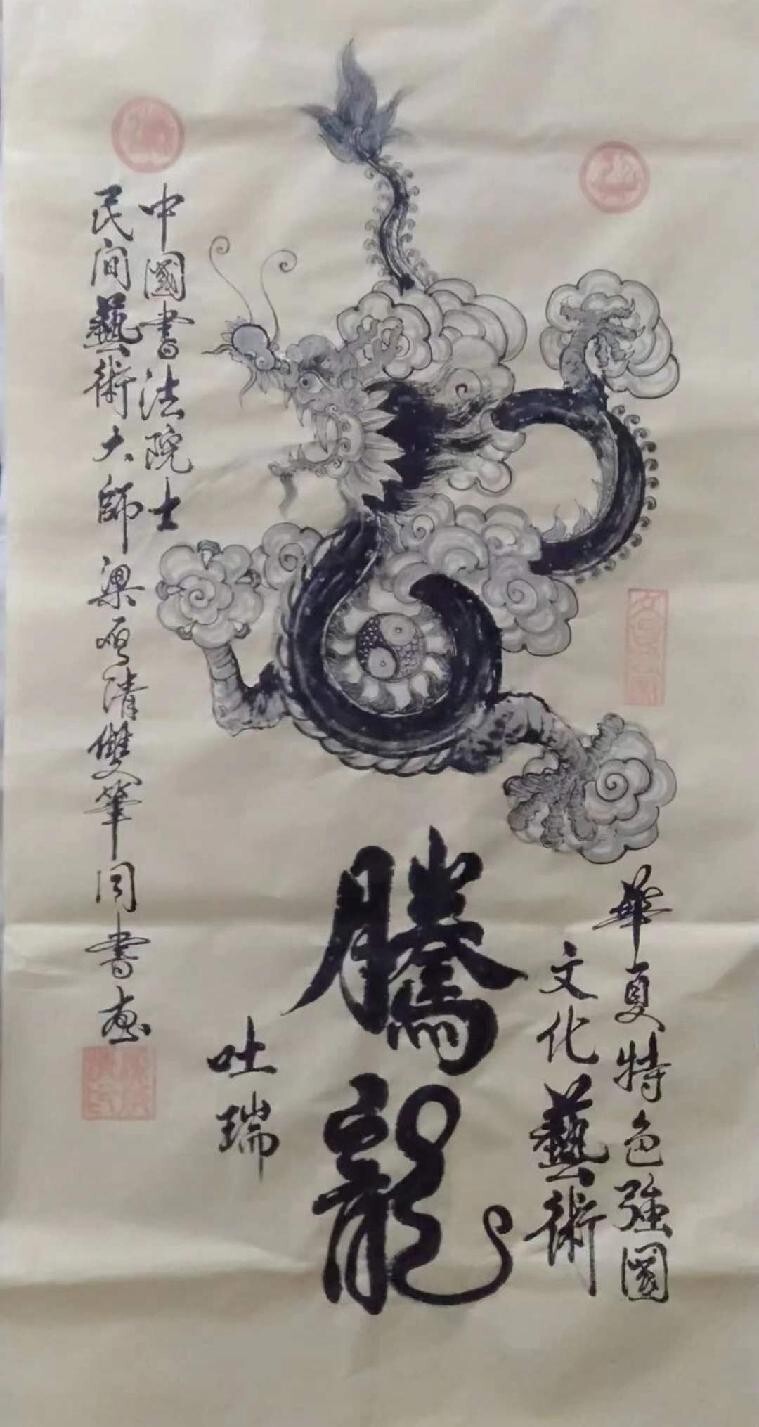 華夏特色強國
文化藝術
騰龍
吐瑞
中國書法院士
民间藝術大師梁 清雙筆同書画